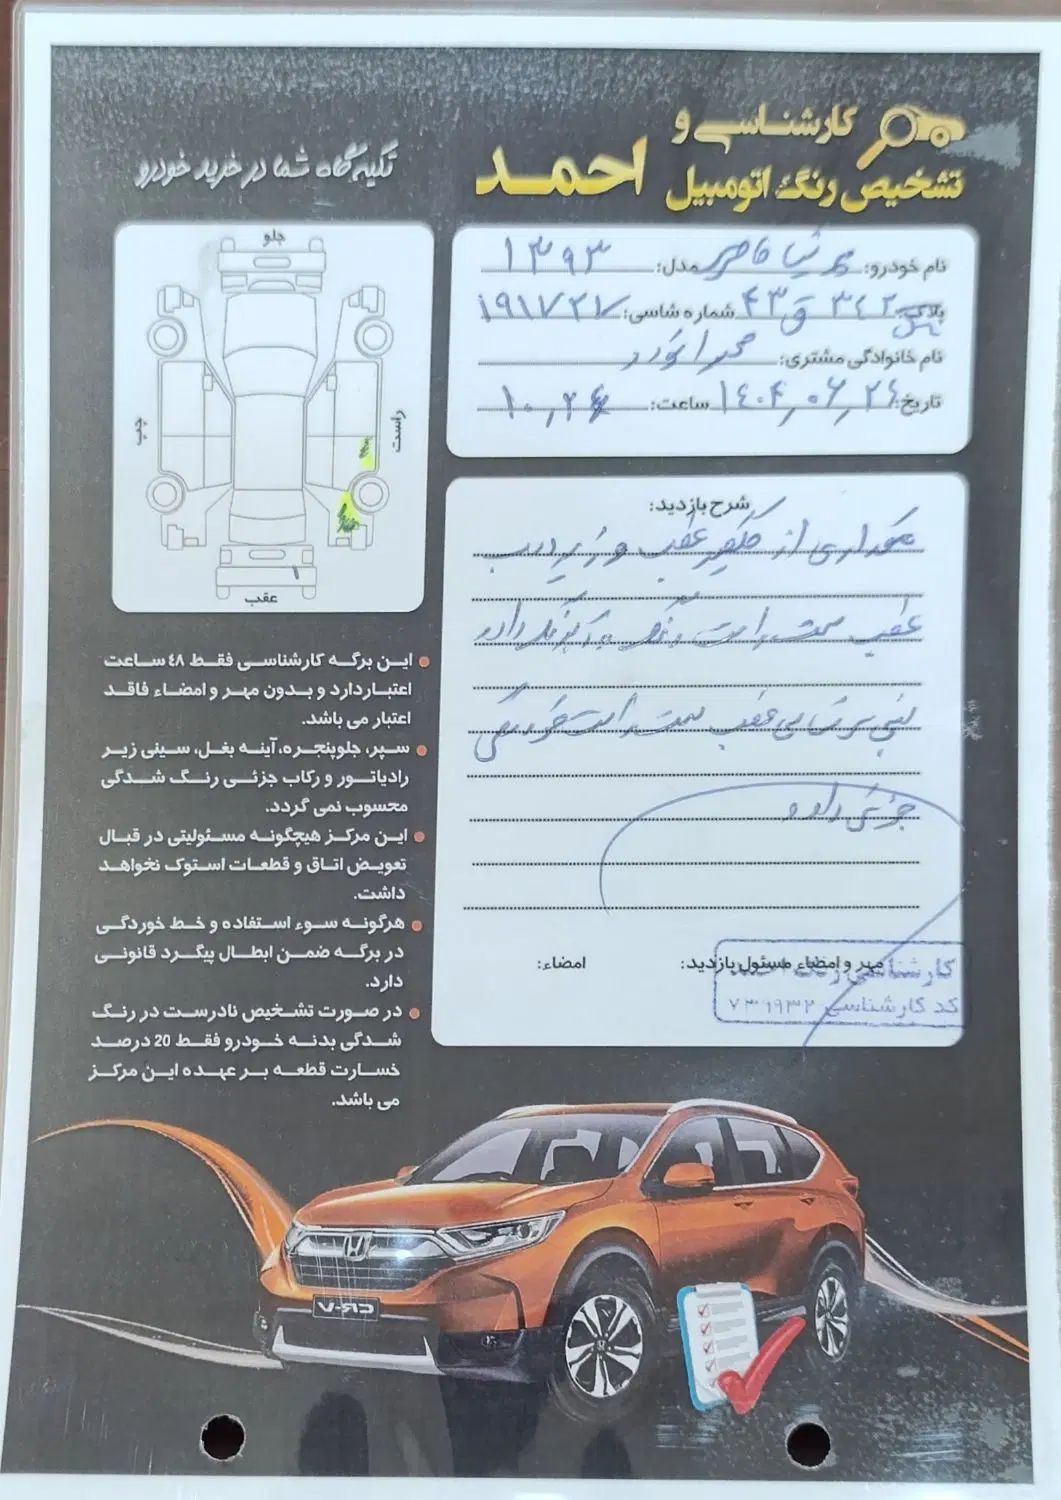 کارشناسی و
تشخیص رنگ اتومبیل احمد
تکیه گاه شما در خرید خودرو
نام خودرو: برلیانس مدل: ۱۳۹۳
پلاک: ۳۴۲ ق ۴۳ شماره شاسی: ۱۹۱۷۲۷
نام خانوادگی مشتری:
تاریخ: ۱۴۰۴,۰۶,۲۶ ساعت: ۱۰,۲۶
جلو
چپ
راست
عقب
شرح بازدید:
مقداری از گلگیر عقب و زیر درب
عقب سمت راست رنگ و آبرنگ دارد
سینی عقب سمت راست خوردگی
جزئی دارد
مهر و امضاء مسئول بازدید: امضاء:
کارشناسی رنگ احمد
کد کارشناسی ۷۳۹۹۳۲
این برگه کارشناسی فقط ۴۸ ساعت
اعتبار دارد و بدون مهر و امضاء فاقد
اعتبار می باشد.
سپر، جلوپنجره، آینه بغل، سینی زیر
رادیاتور و رکاب جزئی رنگ شدگی
محسوب نمی گردد.
این مرکز هیچگونه مسئولیتی در قبال
تعویض اتاق و قطعات استوک نخواهد
داشت.
هرگونه سوء استفاده و خط خوردگی
در برگه ضمن ابطال پیگرد قانونی
دارد.
در صورت تشخیص نادرست در رنگ
شدگی بدنه خودرو فقط 20 درصد
خسارت قطعه بر عهده این مرکز
می باشد.
CR-V